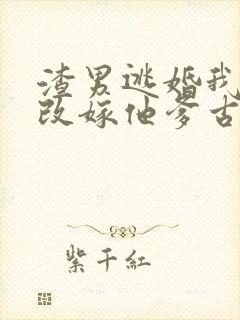 渣男逃婚我
改嫁他爹古
紫千红